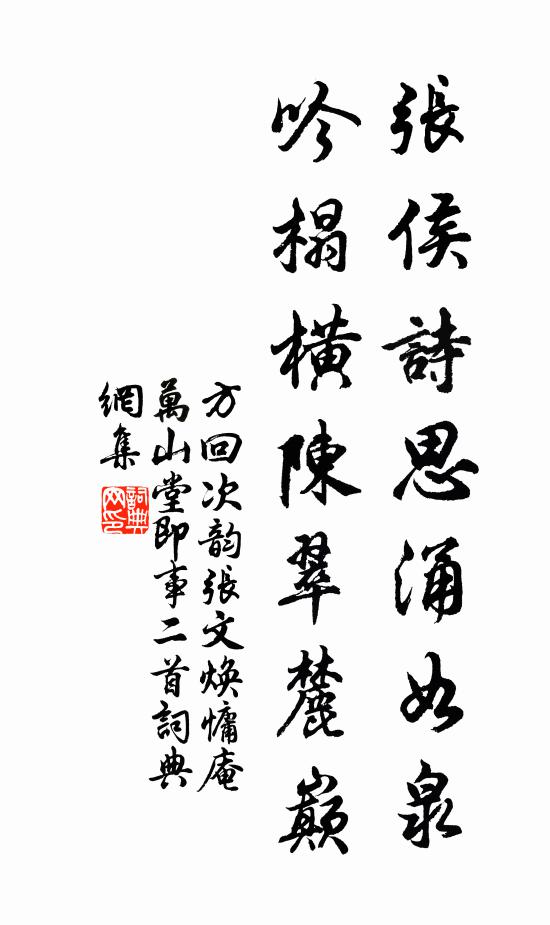 張侯詩思涌如泉
吟榻橫陳翠麓巔
方回次韵張文煥慵庵
萬山堂即事二首詞典
網集
詞典
网印